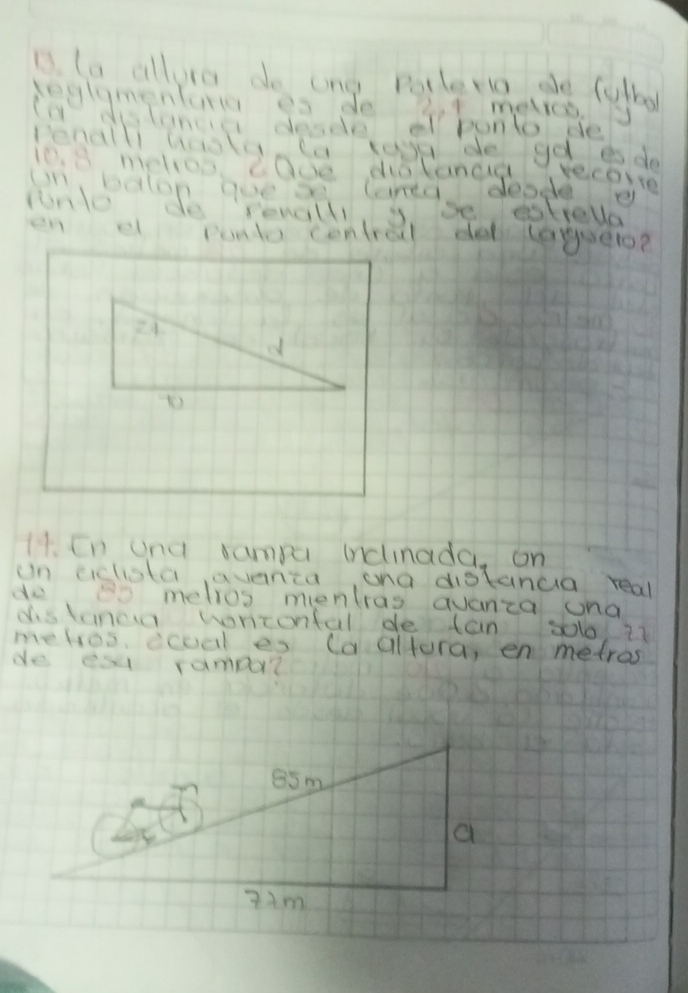 13. la altura de una Porteria de futbol
reglamentaria es de 2,4 metros y
la distancia desde el punto de
Penalti hasta la raya de gol es de
10.8 metros ¿Que distancia recorre
un balon que se lanza desde el
Punto de Penalti y se estrella
en el Punto central del larguero?
d
14. En una rampa inclinada, on
un ciclista avanza una distancia real
de 85 metros mientras avanza una
distancia horizontal de tan solo 77
metros. ¿cual es la altura, en metros
de esa rampa?
85m
a
77m